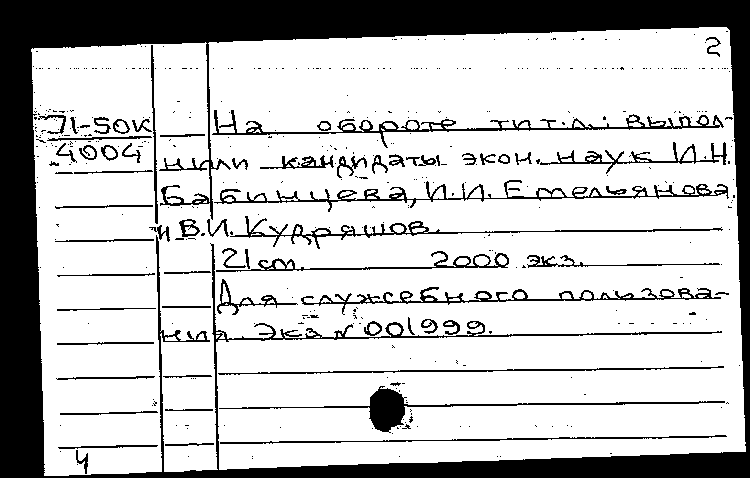 2
71-50к На обороте тит.л.: выпол-
4004 нили кандидаты экон. наук И.Н.
Бабинцева, И.И. Емельянова
и В.И. Кудряшов.
21 cm. 2000 экз.
Для служебного пользова-
ния Экз № 001999.
4